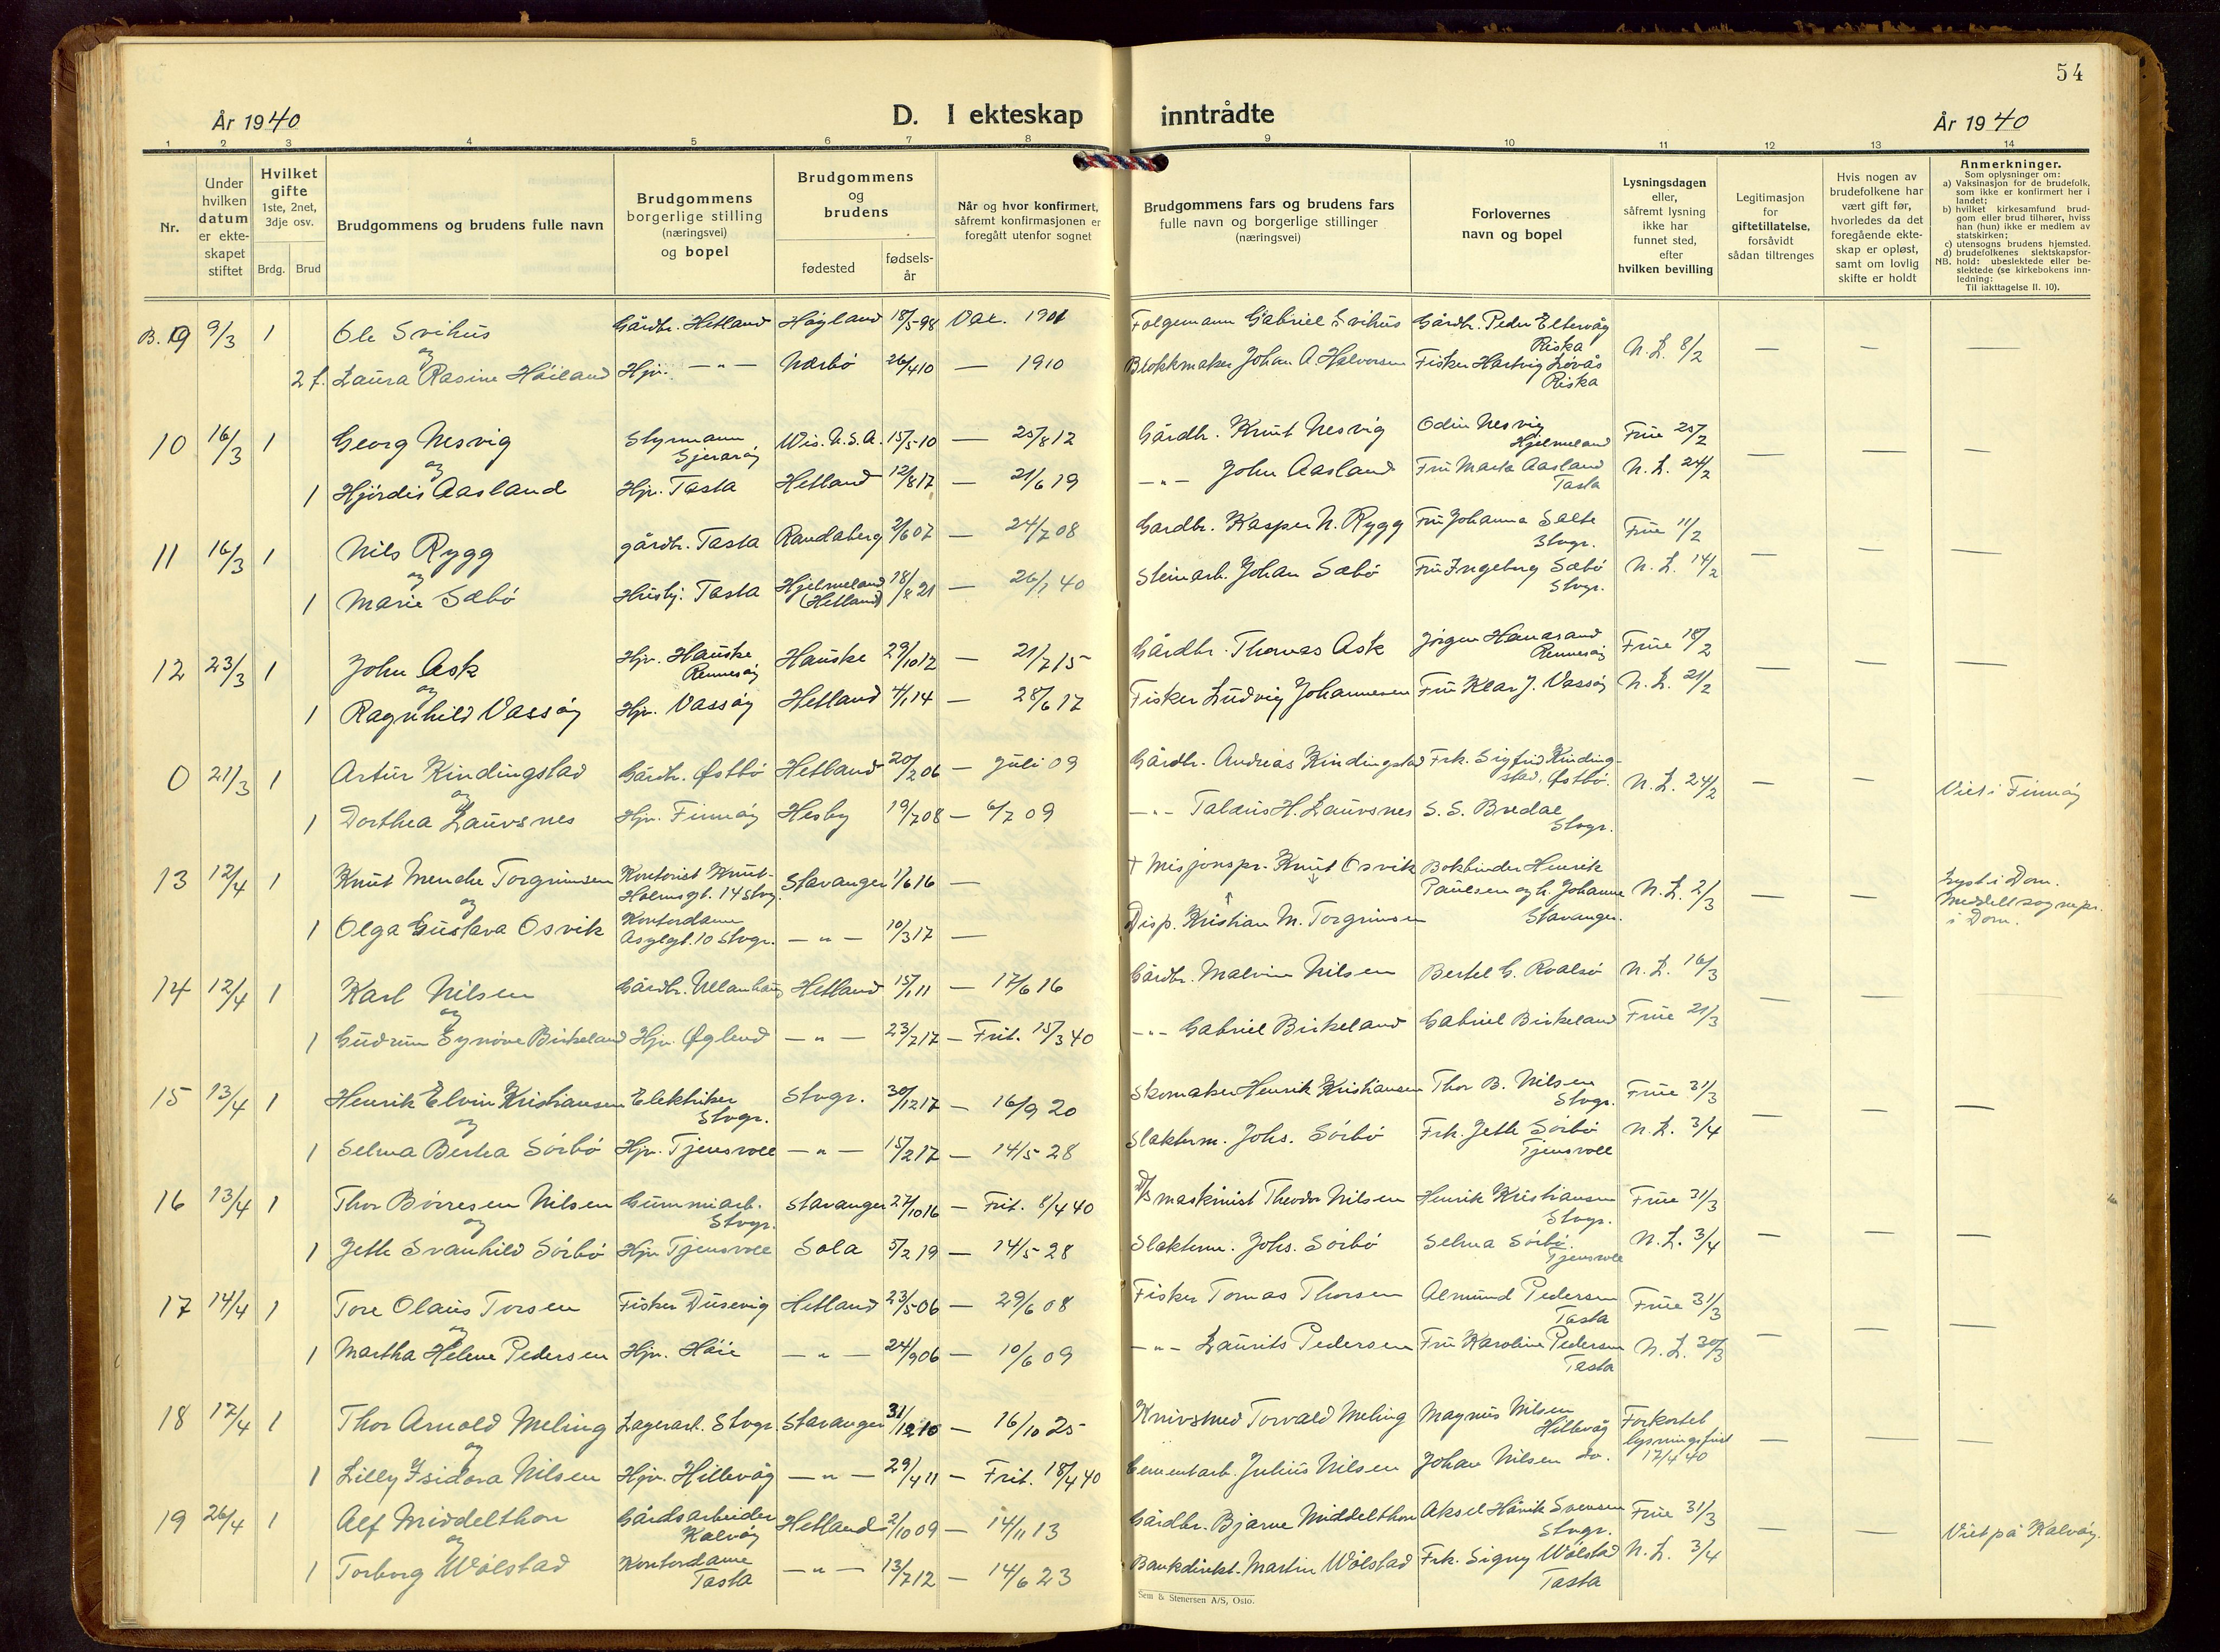 54
År 1940
D. I ekteskap inntrådte
År 1940
1 2 3 4 5 6 7 8 9 10 11 12 13 14
Nr.
Under hvilken datum er ekte-skapet stiftet
Hvilket gifte 1ste, 2net, 3dje osv.
Brdg. Brud
Brudgommens og brudens fulle navn
Brudgommens borgerlige stilling (næringsvei) og bopel
Brudgommens og brudens
fødested
fødsels-år
Når og hvor konfirmert, såfremt konfirmasjonen er foregått utenfor sognet
Brudgommens fars og brudens fars fulle navn og borgerlige stillinger (næringsvei)
Forlovernes navn og bopel
Lysningsdagen eller, såfremt lysning ikke har funnet sted, efter hvilken bevilling
Legitimasjon for giftetillatelse, forsåvidt sådan tiltrenges
Hvis nogen av brudefolkene har vært gift før, hvorledes da det foregående ekte-skap er opløst, samt om lovlig skifte er holdt
Anmerkninger.
Som oplysninger om:
a) Vaksinasjon for de brudefolk, som ikke er konfirmert her i landet;
b) hvilket kirkesamfund brud-gom eller brud tilhører, hviss han (hun) ikke er medlem av statskirken;
c) utensogns brudens hjemsted.
d) brudefolkenes slektskapsfor-hold: ubeslektede eller be-slektede (se kirkebokens inn-ledning:
NB. Til iakttagelse II. 10).
B. 9 9/3 1 Ole Svihus Gårdbr. Hetland Høyland 18/5-98 Vax. 1901 Gabriel Svihus Gårdbr. Peder Eltervåg Riska N.L. 8/2 — — —
og
2 f. Laura Rasine Høiland Hjv. —"— Nærbø 26/4 10 — 1910 Blokkmaker Johan A. Halvorsen Fisker Hartvig Løvås Riska
10 16/3 1 Georg Nesvig Styrmann Wis. U.S.A. 15/5-10 — 25/8 12 Gårdbr. Knut Nesvig Odin Nesvig Hjelmeland Frue 25/2 — — —
og
1 Hjördis Aasland Hjv. Tasta Hetland 12/8 17 — 21/6 19 —"— John Aasland Fru Marta Aasland Tasta N.L. 24/2
11 16/3 1 Nils Rygg gårdbr. Tasta Randaberg 2/6 07 — 24/7 08 Gardbr. Kasper N. Rygg Fru Johanna Salte Stvgr. Frue 11/2 — — —
og
1 Marie Sæbö Husbj. Tasta Hjelmeland (Hetland) 18/8 21 — 26/1 40 Steinarb. Johan Sæbö Fru Ingeborg Sæbö Stvgr. N.L. 14/2
12 23/3 1 John Ask Hjv. Hauske Rennesöy Hauske 29/10 12 — 21/7 15 Gårdbr. Thomas Ask Jörgen Hanasand Rennesöy Frue 18/2 — — —
og
1 Ragnhild Vassöy Hjv. Vassöy Hetland 4/1 14 — 28/6 17 Fisker Ludvig Johannesen Fru Klar J. Vassöy N.L. 21/2
0 21/3 1 Artur Kindingstad Gårdbr. Østbö Hetland 20/2 06 — Juli 09 Gårdbr. Andreas Kindingstad Frk. Sigfrid Kinding-stad, Østbö. N.L. 24/2 — — Viet i Finnöy
og
1 Dorthea Laurvsnes Hjv. Finnöy Hesby 19/7 08 — 6/7 09 —"— H. Laurvsnes S. S. Bredal Stvgr.
13 12/4 1 Knut Menche Torgrimsen Kontorist Knut-Holmsgt. 14 Stvg. Stavanger 1/6 16 — † Misjonspr. Knut Osvik Bokbinder Henrik Paulsen og h. Johanne Stavanger. N.L. 2/3 — — Lyst i Dom. Meddelt sognepr. i Dom.
og
1 Olga Gustava Osvik Kontordame Asylgt. 10 Stvgr. —"— 10/3 17 — Disp. Kristian M. Torgrimsen
14 12/4 1 Karl Nilsen Gårdbr. Ullanhaug Hetland 15/1 11 — 17/6 16 Gårdbr. Malvin Nilsen Bertel G. Roalsö N.L. 16/3 — — —
og
1 Gudrun Synöve Birkeland Hjv. Øglend —"— 23/7 17 — Frit. 15/3 40 —"— Gabriel Birkeland Gabriel Birkeland Frue 21/3
15 13/4 1 Henrik Elvin Kristiansen Elektriker Stvgr. Stvgr. 30/12 17 — 16/9 20 Skomaker Henrik Kristiansen Thor B. Nilsen Stvgr. Frue 31/3 — — —
og
1 Selma Berta Sörbö Hjv. Tjensvoll —"— 15/2 17 — 14/5 28 Slakterm. Johs. Sörbö Frk. Jette Sörbö Tjensvoll N.L. 3/4
16 13/4 1 Thor Börresen Nilsen Gummiarb. Stvgr. Stavanger 27/10 16 — Frit. 8/4 40 D/S maskinist Theodor Nilsen Henrik Kristiansen Stvgr. Frue 31/3 — — —
og
1 Jette Svanhild Sörbö Hjv Tjensvoll Sola 5/2 19 — 14/5 28 Slakterm. Johs. Sörbö Selma Sörbö Tjensvoll N.L. 3/4
17 14/4 1 Tore Olaus Torsen Fisker Dusevig Hetland 23/5 06 — 29/6 08 Fisker Tomas Thorsen Almund Pedersen Tasta Frue 31/3 — — —
og
1 Martha Helene Pedersen Hjv. Höie —"— 24/9 06 — 10/6 09 —"— Laurits Pedersen Fru Karoline Pedersen Tasta N.L. 30/3
18 17/4 1 Thor Arnold Meling Lagerarb. Stvgr. Stavanger 31/12 10 — 16/10 25 Knivsmed Torvald Meling Magnus Nilsen Hillevåg Forkortet lysningsfrist 17/4 40 — — —
og
1 Lilly Isidora Nilsen Hjv. Hillevåg —"— 29/4 11 — Frit. 18/4 40 Cementarb. Julius Nilsen Johan Nilsen do.
19 26/4 1 Alf Middelthon Gårdsarbeider Kalvöy Hetland 2/10 09 — 14/11 13 Gårdbr. Bjarne Middelthon Aksel Hårik Svensen Stvgr. Frue 31/3 — — Viet på Kalvöy.
og
1 Torborg Wölstad Kontordame Tasta —"— 13/7 12 — 14/6 23 Bankdirekt. Martin Wölstad Frk. Signy Wölstad Tasta N.L. 3/4
Sem & Stenersen A/S, Oslo.